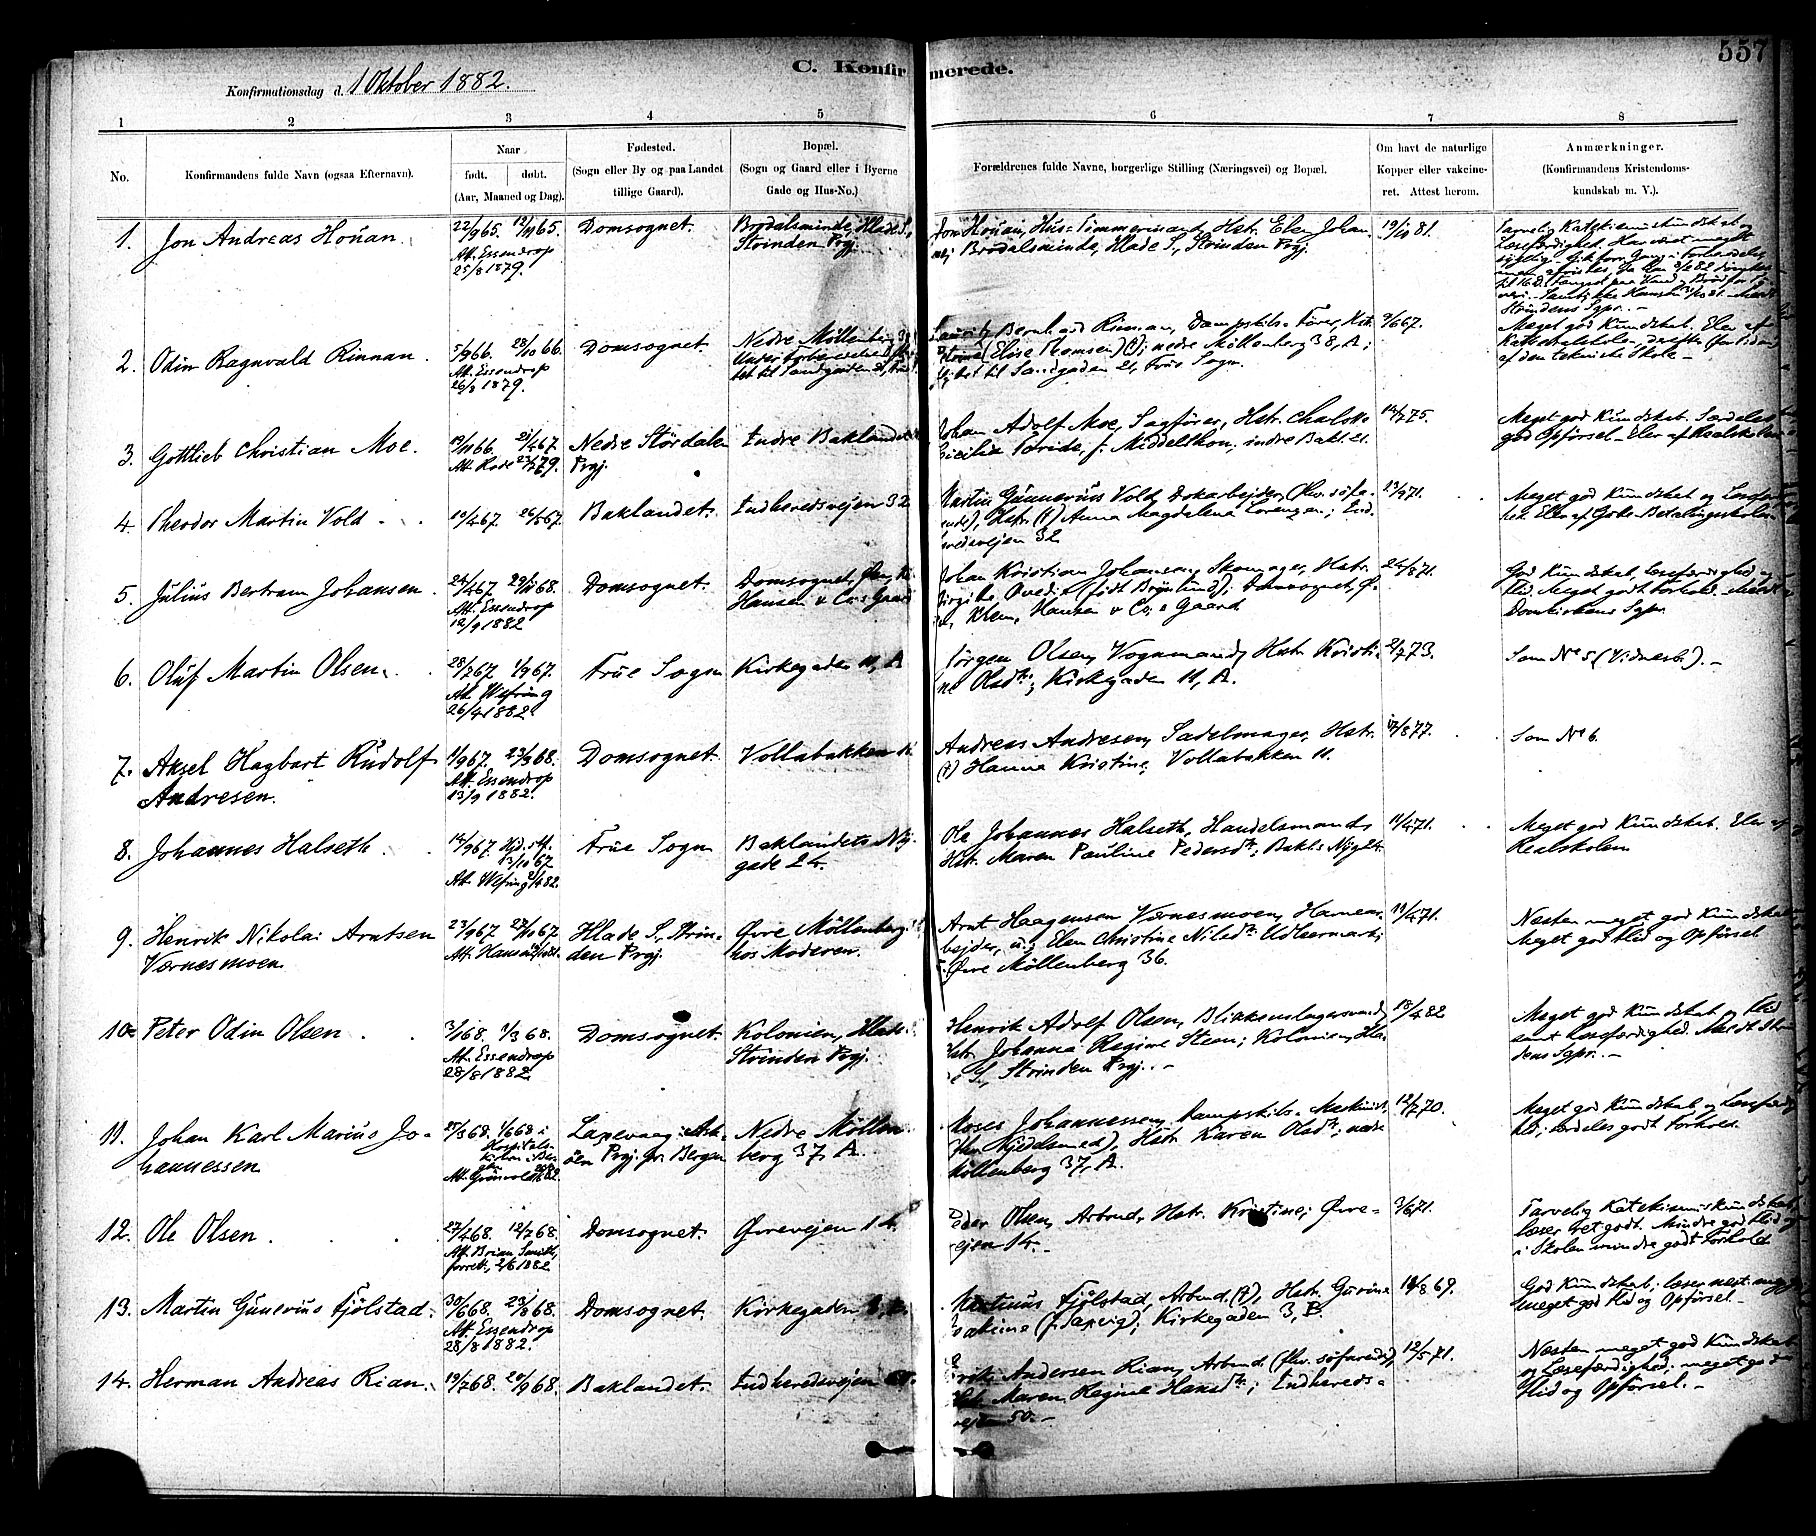 557
C. Konfirmerede.
Konfirmationsdag d. 1 Oktober 1882.
1 2 3 4 5 6 7 8
No.
Konfirmandens fulde Navn (ogsaa Efternavn).
Naar
født. døbt.
(Aar, Maaned og Dag).
Fødested.
(Sogn eller By og paa Landet
tillige Gaard).
Bopæl.
(Sogn og Gaard eller i Byerne
Gade og Hus-No.)
Forældrenes fulde Navne, borgerlige Stilling (Næringsvei) og Bopæl.
Om havt de naturlige
Kopper eller vakcine-
ret. Attest herom.
Anmærkninger.
(Konfirmandens Kristendoms-
kundskab m. V.).
1. Jon Andreas Hoüan.
22/9 65. 12/11 65.
Att. Essendrop
25/8 1879.
Domsognet.
Brødalsminde, Hlade S.,
Strinden Prgj.
Jon Hoüan, Hus-Timmermand, Hstr. Elen Johan-
Brødalsminde, Hlade S., Strinden Prgj.
19/10 81.
Tarvelig Katekismuskundskab og
Læsefærdighed. Har været meget
sygelig.
Strindens Sgpr. -
2. Odin Ragnvald Rinnan.
5/9 66. 28/10 66.
Att. Essendrop
26/8 1879.
Domsognet.
Nedre Möllenberg 38
Bernhard Rinnan, Dampskibs-Fører, Hstr.
(Elise Thomsen) (†); nedre Möllenberg 38, A;
til Sandgaden 21, Frue Sogn.
9/6 67.
Meget god Kundskab. Elev af
Katedralskolen, derefter for Tiden
af den tekniske Skole -
3. Gottlieb Christian Moe.
19/11 66. 21/4 67.
Att. Rode 23/7 79.
Nedre Stördalen
Prgj.
Indre Baklandet
Johan Adolf Moe, Sagfører, Hstr. Charlotte
Cicilia Toride, f. Middelthon; indre Bakl. 21.
14/7 75.
Meget god Kundskab. Særdeles
god Opførsel - Elev af Realskolen
4. Theodor Martin Vold.
19/4 67. 26/5 67.
Baklandet.
Indheredsvejen 32
Martin Günnerius Vold, Dokarbejder, (Fhv. søfa-
rende), Hstr. (†) Anna Magdalena Lorenzen; Ind-
heredsvejen 32
23/4 71.
Meget god Kundskab og Læsefærdig-
hed. Elev af Gode-Betalingsskolen.
5. Jülius Bertram Johansen.
24/4 67. 29/11 68.
Att. Essendrop
12/9 1882
Domsognet.
Domsognet,
Hansen & Co.s Gaard
Johan Kristian Johansen, Skomager, Hstr.
Birgitte Ovedie (født Brynlund); Domsognet,
Hansen & Co.s Gaard
24/8 71.
God Kundskab, Læsefærdighed og
Flid. Meget godt Forhold.
Domkirkens Sgpr.
6. Oluf Martin Olsen.
28/7 67. 1/9 67.
Att. Wefring
26/4 1882.
Frue Sogn
Kirkegaden 11, A
Jörgen Olsen, Vognmand, Hstr. Kristi-
ne Olsdtr.; Kirkegaden 11, A.
2/7 73.
Som No 5 (Vidnesb.). -
7. Aksel Hagbart Rüdolf
Andresen.
11/9 67. 23/3 68.
Att. Essendrop
13/9 1882.
Domsognet.
Vollabakken 11
Andreas Andresen, Sadelmager, Hstr.
(†) Hanna Kristine; Vollabakken 11.
17/8 77.
Som No 6.
8. Johannes Halseth.
14/9 67. Hjd. 5/9.
13/10 67
Att. Wefring 2/4 82.
Frue Sogn
Baklandets Ny-
gade 24.
Ole Johannes Halseth, Handelsmand,
Hstr. Maren Pauline Pedersdtr.; Bakl. Nyg. 24.
11/4 71.
Meget god Kundskab. Elev af
Realskolen
9. Henrik Nikolai Arntsen
Værnesmoen.
23/9 67. 27/10 67.
Att. Hansen
Hlade S., Strin-
den Prgj.
Øvre Möllenberg
hos Moderen.
Arnt Haagensen Værnesmoen, Havnear-
bejder, ug. Elen Christine Nilsdtr. Udleermark;
Øvre Möllenberg 36.
11/4 71.
Næsten meget god Kundskab
Meget god Flid og Opførsel
10. Peter Odin Olsen.
3/1 68. 1/3 68.
Att. Essendrop
28/8 1882
Domsognet.
Kolonien, Hlade S.
Strinden Prgj.
Henrik Adolf Olsen, Blikkenslagersvend,
Hstr. Johanna Regine Steen; Kolonien, Hla-
de S., Strinden Prgj. -
18/4 82
Meget god Kundskab, Flid
samt Læsefærdighed. Meldt Strin-
dens Sgpr. -
11. Johan Karl Marius Jo-
hannessen
27/3 68. 1/6 68 i
Hospitals-
kirken i Ber-
gen
Att. Grönvold
Lapevaag i Ask-
öen Prgj. pr. Bergen
Nedre Möllen-
berg 37, A
Moses Johannessen, Dampskibs-Maskinist,
(fhv. Kjedelsmed), Hstr. Karen Olsdtr.; nedre
Möllenberg 37, A.
12/7 70.
Meget god Kundskab og Læsefærdig-
hed; særdeles godt Forhold.
12. Ole Olsen.
27/4 68. 12/7 68.
Att. Brian Smith,
forret., 2/6 1882
Domsognet.
Øvrevejen 14.
Peder Olsen, Arbmd., Hstr. Kristine; Øvre-
vejen 14. -
3/6 71.
Tarvelig Katekismuskundskab,
læser ret godt. Mindre god Flid og
i Skolen mindre godt Forhold
13. Martin Günerius Fjölstad.
30/6 68. 23/8 68.
Att. Essendrop
28/8 1882.
Domsognet.
Kirkegaden 3, B.
Martinus Fjölstad, Arbmd. (†), Hstr. Gurine
Joakime (f. Tapvig); Kirkegaden 3, B.
14/8 69.
God Kundskab; læser næst. meget
meget god Flid og Opførsel. -
14. Herman Andreas Rian.
19/7 68. 20/9 68.
Baklandet.
Indheredsvejen 50.
Erik Andersen Rian, Arbmd. (fhv. søfarende),
Hstr. Maren Regine Hansdtr.; Indhereds-
vejen 50. -
12/5 71.
Næsten meget god Kundskab
og Læsefærdighed; meget god
Flid og Opførsel. -